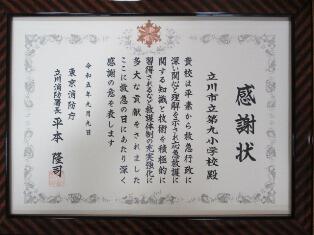 感謝状
立川市立第九小学校 殿
貴校は平素から救急行政に
深い関心と理解を示され応急救護に
関する知識と技術を積極的に
習得されるなど救護体制の充実強化に
多大な貢献をされました
ここに救急の日にあたり深く
感謝の意を表します
令和五年九月九日
東京消防庁
立川消防署長 平本 隆司